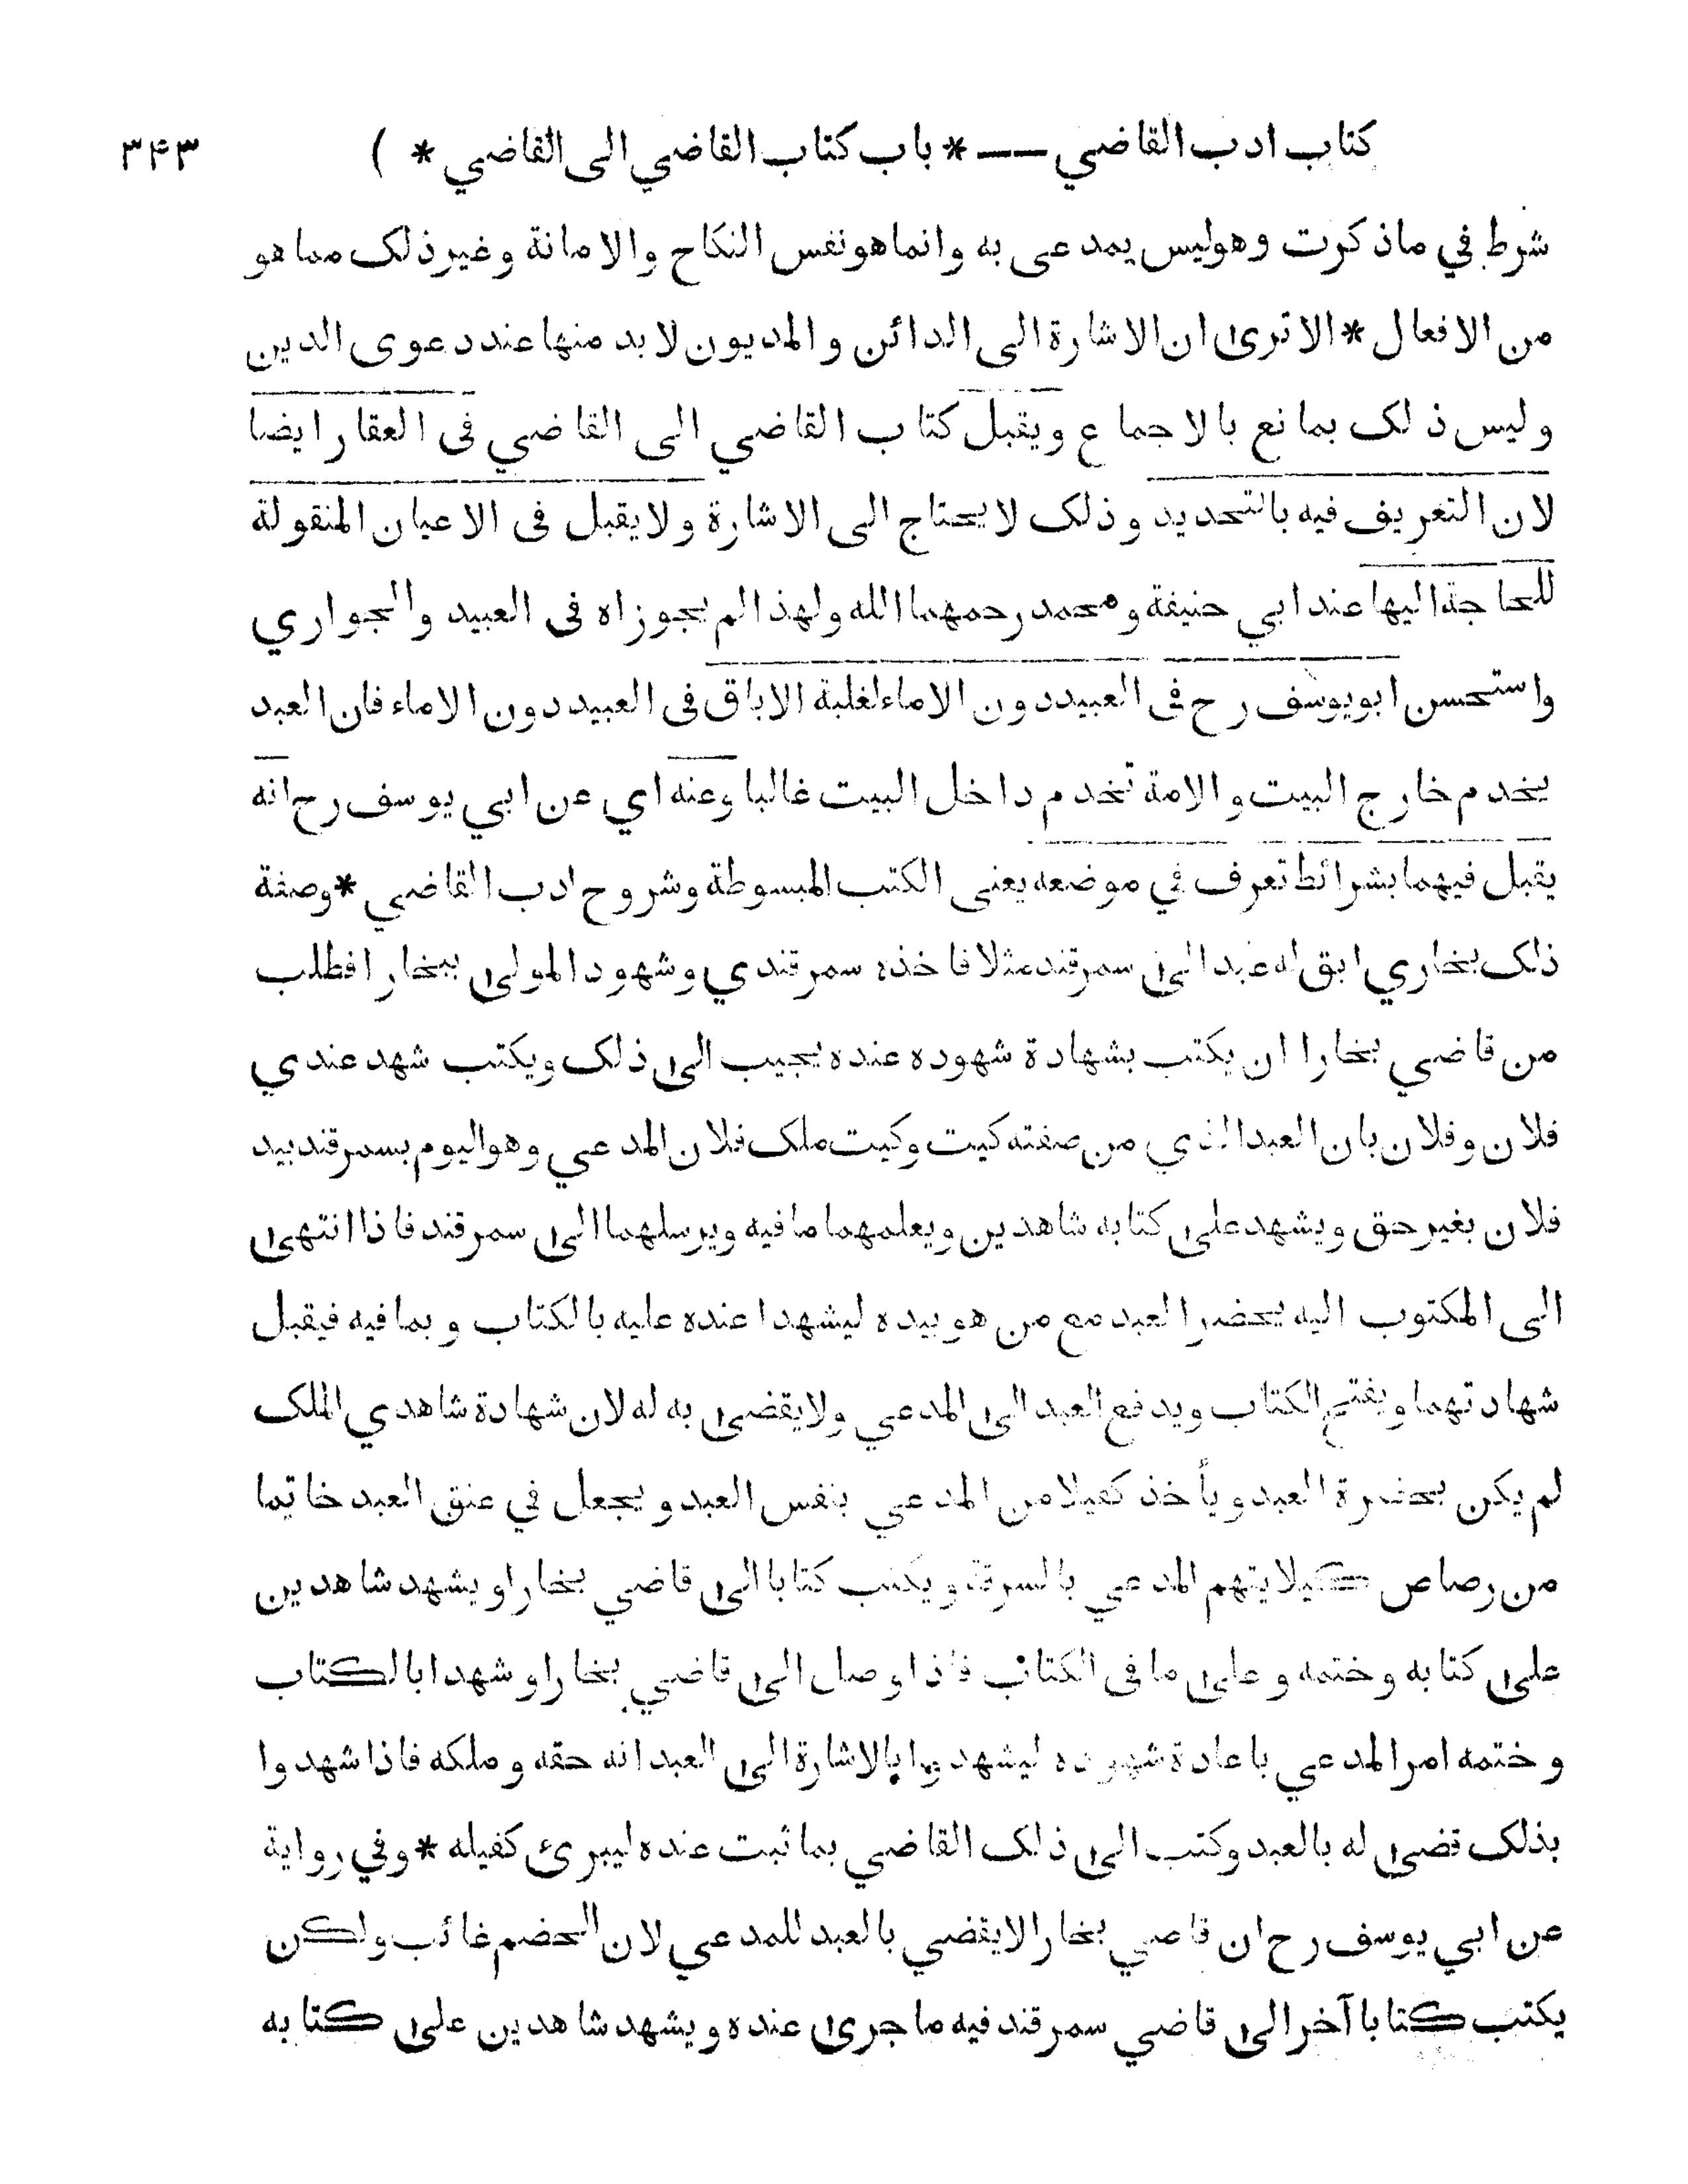 كتاب ادب القاضي —— * باب كتاب القاضي الى القاضي * ) ٣۴٣
شرط في ماذكرت وهوليس بمدعى به وانماهونفس النكاح والامانة وغيرذلك مماهو
من الافعال * الاترى ان الاشارة الى الدائن والمديون لابد منها عند دعوى الدين
وليس ذلك بمانع بالاجماع ويقبل كتاب القاضي الى القاضي في العقار ايضا
لان التعريف فيه بالتحديد وذلك لايحتاج الى الاشارة ولايقبل في الاعيان المنقولة
للحاجة اليها عند ابي حنيفة ومحمد رحمهما الله ولهذا لم يجوزاه في العبيد والجواري
واستحسن ابويوسف رح في العبيد دون الاماء لغلبة الاباق في العبيد دون الاماء فان العبد
يخدم خارج البيت والامة تخدم داخل البيت غالبا وعنه اي عن ابي يوسف رح انه
يقبل فيهما بشرائط تعرف في موضعه يعنى الكتب المبسوطة وشروح ادب القاضي * وصفة
ذلك بخاري ابق له عبد الى سمرقند مثلا فاخذه سمرقندي وشهود المولى ببخارا فطلب
من قاضي بخارا ان يكتب بشهادة شهوده عنده يجيب الى ذلك ويكتب شهد عندي
فلان وفلان بان العبد الذي من صفته كيت وكيت ملك فلان المدعي وهو اليوم بسمرقند بيد
فلان بغير حق ويشهد على كتابه شاهدين ويعلمهما ما فيه ويرسلهما الى سمرقند فاذا انتهى
الى المكتوب اليه يحضر العبد مع من هو بيده ليشهدا عنده عليه بالكتاب وبما فيه فيقبل
شهادتهما ويفتح الكتاب ويدفع العبد الى المدعي ولايقضى به له لان شهادة شاهدي الملك
لم يكن بحضرة العبد ويأخذ كفيلا من المدعي بنفس العبد ويجعل في عنق العبد خاتما
من رصاص كيلا يتهم المدعي بالسرقة ويكتب كتابا الى قاضي بخارا ويشهد شاهدين
على كتابه وختمه وعلى ما في الكتاب فاذا وصل الى قاضي بخارا وشهدا بالكتاب
وختمه امر المدعي باعادة شهوده ليشهدوا بالاشارة الى العبد انه حقه وملكه فاذا شهدوا
بذلك قضى له بالعبد وكتب الى ذلك القاضي بما ثبت عنده ليبرئ كفيله * وفي رواية
عن ابي يوسف رح ان قاضي بخارا لايقضي بالعبد للمدعي لان الخصم غائب ولكن
يكتب كتابا آخر الى قاضي سمرقند فيه ما جرى عنده ويشهد شاهدين على كتابه